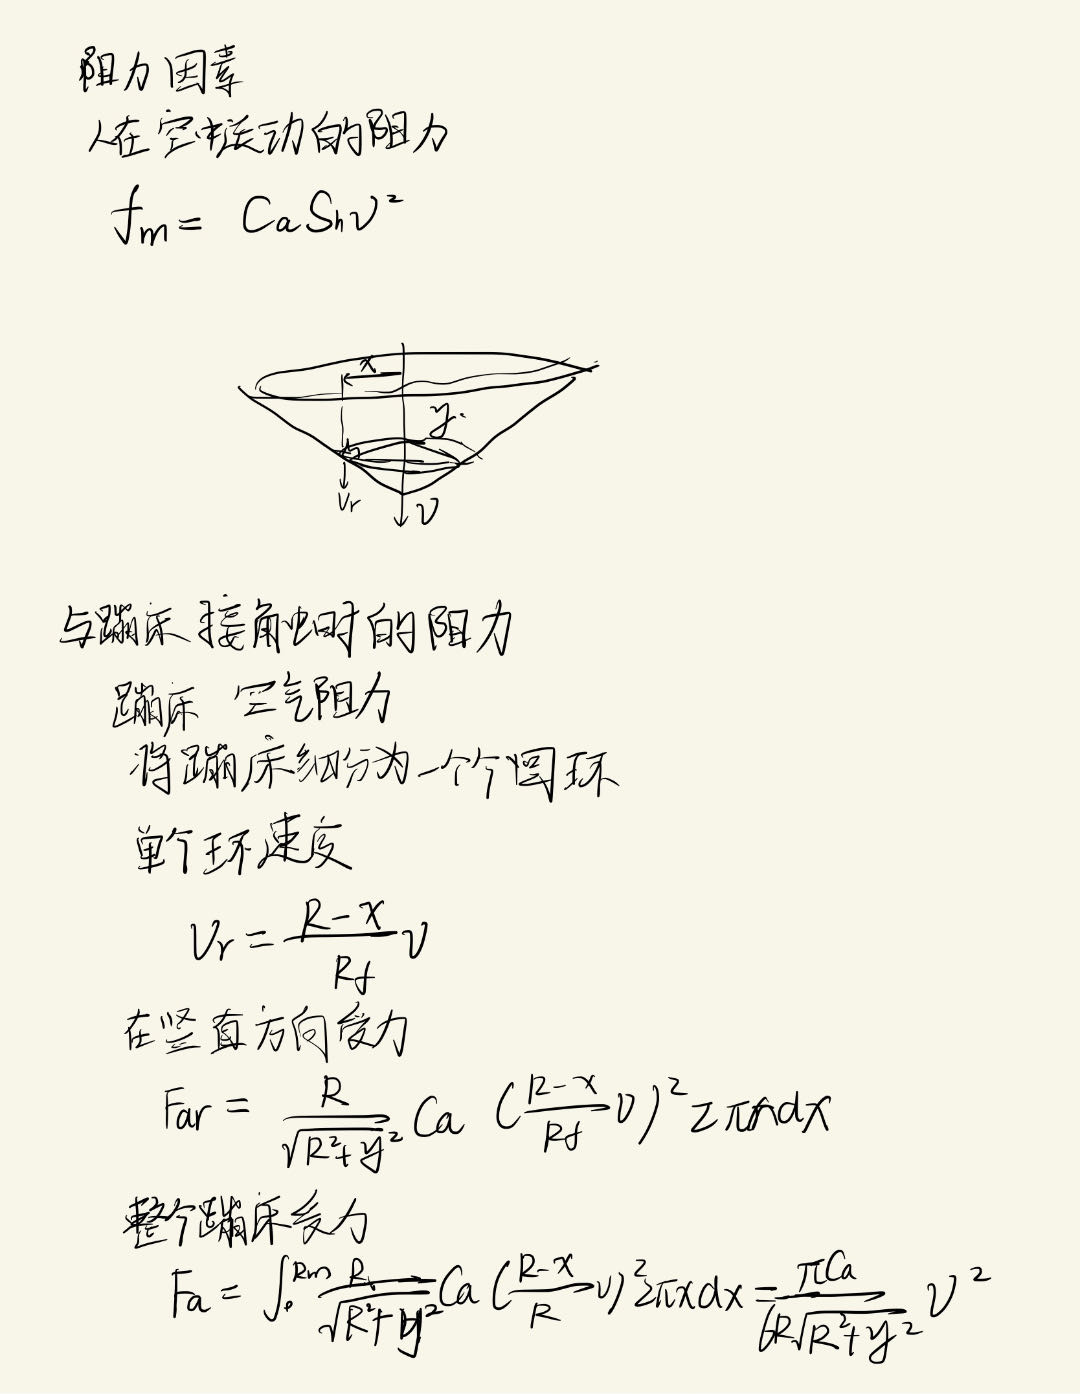 阻力因素
人在空中运动的阻力
fm = CaShv²
x
y.
Vr
v
与蹦床接触时的阻力
蹦床 空气阻力
将蹦床细分为一个个圆环
单个环速度
Vr = (R-x)/Rf v
在竖直方向受力
Far = R/√(R²+y²) Ca ((R-x)/Rf v)² 2πxdx
整个蹦床受力
Fa = ∫ R/√(R²+y²) Ca ((R-x)/R v)² 2πxdx = πCa/(6R√(R²+y²)) v²